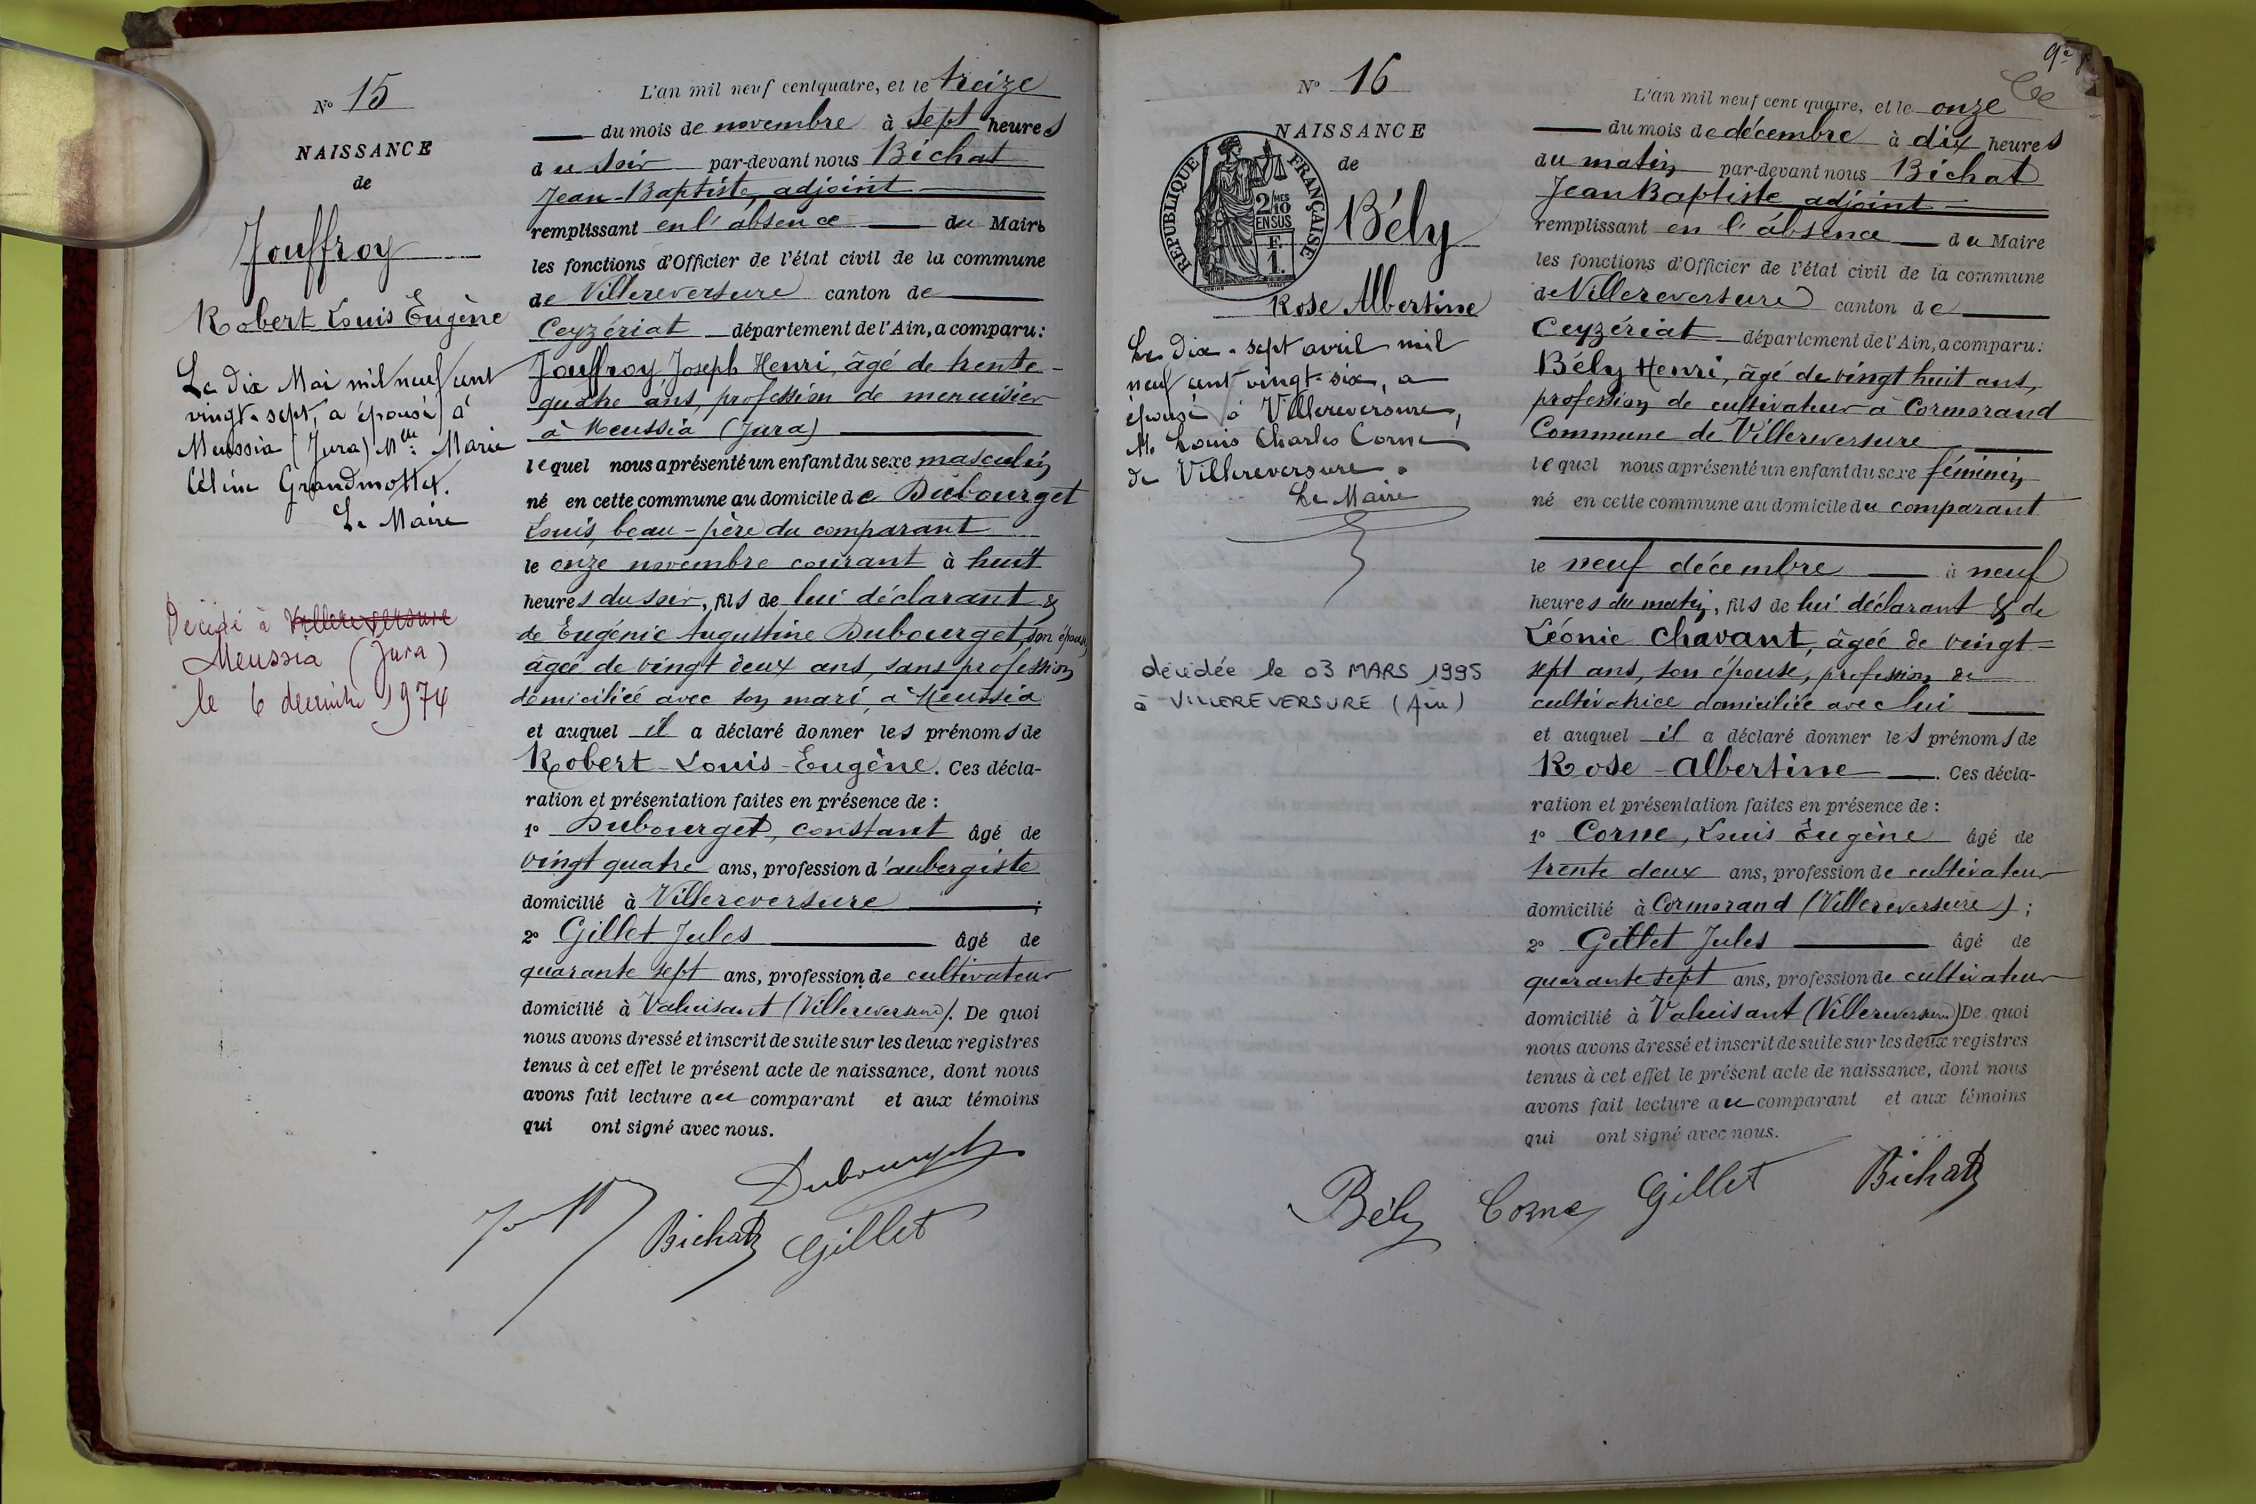 N° 15
NAISSANCE
de
Jouffroy
Robert Louis Eugène
Le dix Mai mil neuf cent
vingt-sept, a épousé à
Meussia (Jura) Mlle Marie
Céline Grandmottet.
Le Maire
Décédé à Villereversure
Meussia (Jura)
le 6 décembre 1974
L'an mil neuf cent quatre, et le treize
du mois de novembre à sept heures
du soir par-devant nous Bichat
Jean-Baptiste, adjoint
remplissant en l'absence du Maire
les fonctions d'Officier de l'état civil de la commune
de Villereversure canton de
Ceyzériat département de l'Ain, a comparu:
Jouffroy Joseph Henri, âgé de trente-
quatre ans, profession de menuisier
à Meussia (Jura)
lequel nous a présenté un enfant du sexe masculin
né en cette commune au domicile de Dubourget
Louis, beau-père du comparant
le onze novembre courant à huit
heures du soir, fils de lui déclarant &
de Eugénie Augustine Dubourget, son épouse,
âgée de vingt deux ans, sans profession
domiciliée avec son mari, à Meussia
et auquel il a déclaré donner les prénoms de
Robert-Louis-Eugène. Ces décla-
ration et présentation faites en présence de :
1° Dubourget, constant âgé de
vingt quatre ans, profession d'aubergiste
domicilié à Villereversure ;
2° Gillet Jules âgé de
quarante sept ans, profession de cultivateur
domicilié à Valuisant (Villereversure). De quoi
nous avons dressé et inscrit de suite sur les deux registres
tenus à cet effet le présent acte de naissance, dont nous
avons fait lecture au comparant et aux témoins
qui ont signé avec nous.
Dubourget
Bichat Gillet
9e
N° 16
NAISSANCE
de
REPUBLIQUE FRANÇAISE
2/10 MES
EN SUS
F.
1.
Bély
Rose Albertine
Le dix-sept avril mil
neuf cent vingt-six, a
épousé à Villereversure,
M. Louis Charles Corne
de Villereversure.
Le Maire
décédée le 03 MARS 1995
à VILLEREVERSURE (Ain)
L'an mil neuf cent quatre, et le onze
du mois de décembre à dix heures
du matin par-devant nous Bichat
Jean Baptiste adjoint
remplissant en l'absence du Maire
les fonctions d'Officier de l'état civil de la commune
de Villereversure canton de
Ceyzériat département de l'Ain, a comparu:
Bély Henri, âgé de vingt huit ans,
profession de cultivateur à Cormorand
Commune de Villereversure
lequel nous a présenté un enfant du sexe féminin
né en cette commune au domicile du comparant
le neuf décembre à neuf
heures du matin, fils de lui déclarant & de
Léonie Chavant, âgée de vingt-
sept ans, son épouse, profession de
cultivatrice domiciliée avec lui
et auquel il a déclaré donner les prénoms de
Rose-Albertine. Ces décla-
ration et présentation faites en présence de :
1° Corne, Louis Eugène âgé de
trente deux ans, profession de cultivateur
domicilié à Cormorand (Villereversure) ;
2° Gillet Jules âgé de
quarante sept ans, profession de cultivateur
domicilié à Valuisant (Villereversure) De quoi
nous avons dressé et inscrit de suite sur les deux registres
tenus à cet effet le présent acte de naissance, dont nous
avons fait lecture au comparant et aux témoins
qui ont signé avec nous.
Bély Corne Gillet Bichat